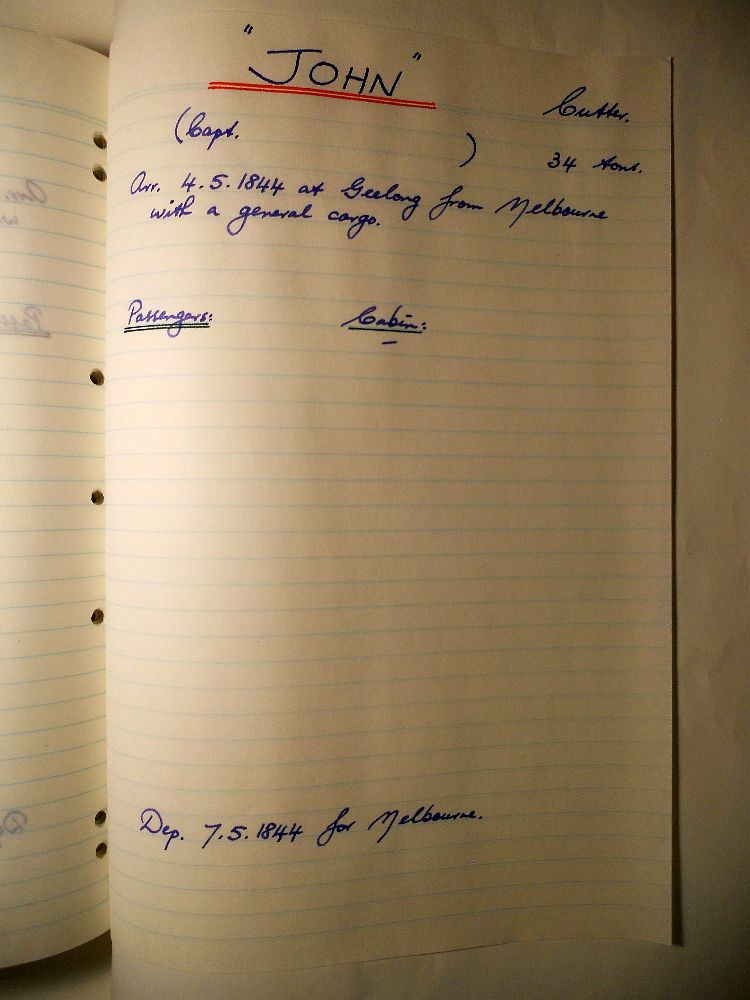 "JOHN"
Cutter.
(Capt. )
34 tons.
Arr. 4.5.1844 at Geelong from Melbourne
with a general cargo.
Passengers: Cabin:
–
Dep. 7.5.1844 for Melbourne.